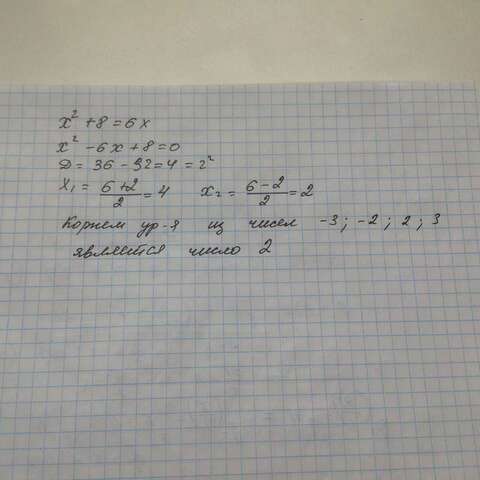 x² + 8 = 6x
x² - 6x + 8 = 0
D = 36 - 32 = 4 = 2²
x₁ = (6+2)/2 = 4 x₂ = (6-2)/2 = 2
Корнем ур-я из чисел -3; -2; 2; 3
является число 2